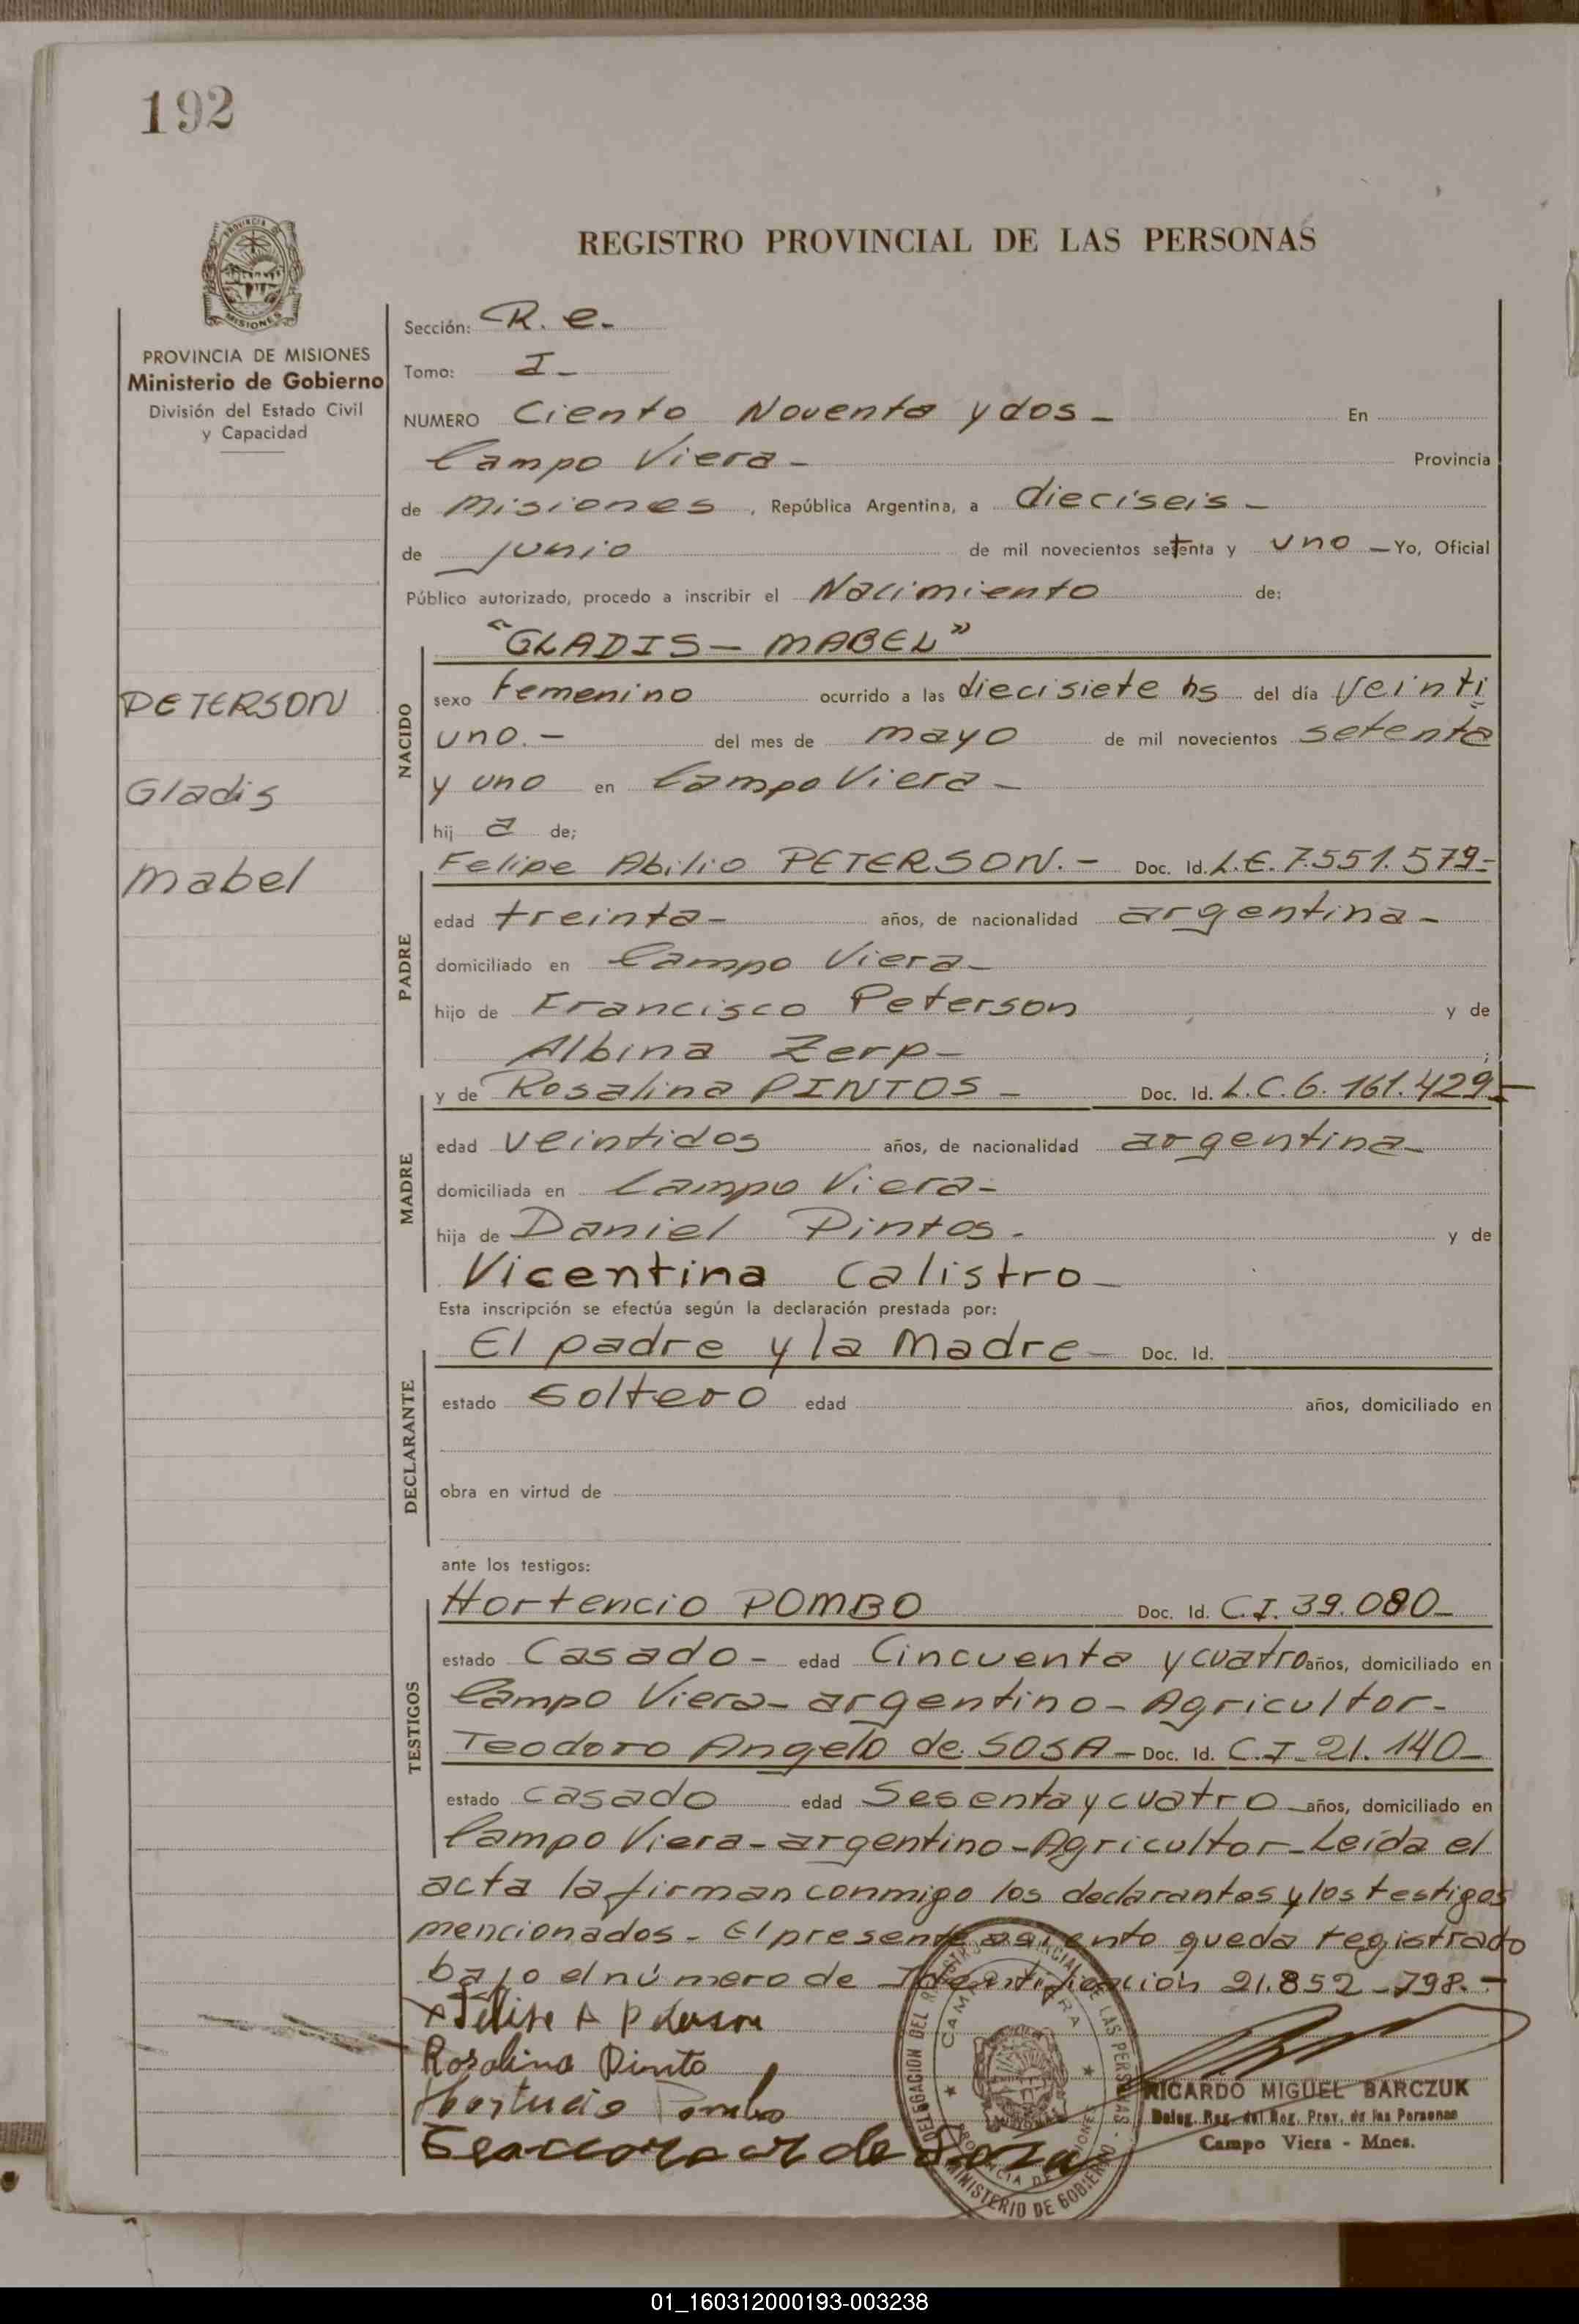 192
PROVINCIA DE MISIONES
Ministerio de Gobierno
División del Estado Civil
y Capacidad
PETERSON
Gladis
Mabel
REGISTRO PROVINCIAL DE LAS PERSONAS
Sección: R. e.
Tomo: I
NUMERO Ciento Noventa y dos - En
Campo Viera - Provincia
de Misiones, República Argentina, a dieciseis -
de junio de mil novecientos setenta y uno - Yo, Oficial
Público autorizado, procedo a inscribir el Nacimiento de:
NACIDO
"GLADIS - MABEL"
sexo femenino ocurrido a las diecisiete hs del día veinti
uno.- del mes de mayo de mil novecientos setenta
y uno en Campo Viera -
hij a de;
PADRE
Felipe Abilio PETERSON.- Doc. Id. L.E. 7.551.579-
edad treinta - años, de nacionalidad argentina -
domiciliado en Campo Viera -
hijo de Francisco Peterson y de
Albina Zerp - ;
MADRE
y de Rosalina PINTOS - Doc. Id. L.C. 6.161.429-
edad veintidos años, de nacionalidad argentina -
domiciliada en Campo Viera -
hija de Daniel Pintos. y de
Vicentina Calistro -
Esta inscripción se efectúa según la declaración prestada por:
DECLARANTE
El padre y la Madre - Doc. Id.
estado Soltero edad años, domiciliado en
obra en virtud de
ante los testigos:
TESTIGOS
Hortencio POMBO Doc. Id. C.I. 39.080-
estado Casado - edad Cincuenta y cuatro años, domiciliado en
Campo Viera - argentino - Agricultor -
Teodoro Angelo de SOSA - Doc. Id. C.I. 21.140-
estado casado edad Sesenta y cuatro años, domiciliado en
Campo Viera - argentino - Agricultor - Leída el
acta la firman conmigo los declarantes y los testigos
mencionados - El presente asiento queda registrado
bajo el número de Identificación 21.852-798.-
x Felipe A Peterson
Rosalina Pinto
Hortencio Pombo
de Sosa
DELEGACION DEL REGISTRO PROVINCIAL DE LAS PERSONAS
CAMPO VIERA
PROVINCIA DE MISIONES
MINISTERIO DE GOBIERNO
RICARDO MIGUEL BARCZUK
Deleg. Reg. del Reg. Prov. de las Personas
Campo Viera - Mnes.
01_160312000193-003238